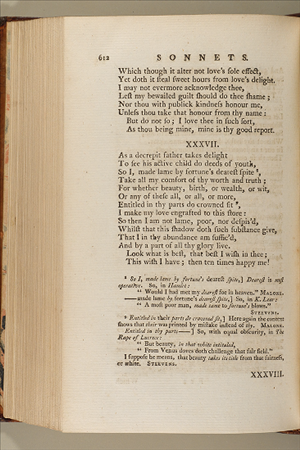 612 SONNETS.
Which though it alter not love's sole effect,
Yet doth it steal sweet hours from love's delight.
I may not evermore acknowledge thee,
Lest my bewailed guilt should do thee shame;
Nor thou with publick kindness honour me,
Unless thou take that honour from thy name:
But do not so; I love thee in such sort,
As thou being mine, mine is thy good report.
XXXVII.
As a decrepit father takes delight
To see his active child do deeds of youth,
So I, made lame by fortune's dearest spite,
Take all my comfort of thy worth and truth;
For whether beauty, birth, or wealth, or wit,
Or any of these all, or all, or more,
Entitled in thy parts do crowned sit,
I make my love engrafted to this store:
So then I am not lame, poor, nor despis'd,
Whilst that this shadow doth such substance give,
That I in thy abundance am suffic'd,
And by a part of all thy glory live.
Look what is best, that best I wish in thee;
This wish I have; then ten times happy me!
So I, made lame by fortune's dearest spite,] Dearest is most
operative. So, in Hamlet:
" Would I had met my dearest foe in heaven." MALONE.
—made lame by fortune's dearest spite,] So, in K. Lear:
" A most poor man, made tame to fortune's blows."
STEEVENS.
Entitled in their parts do crowned sit,] Here again the context
shows that their was printed by mistake instead of thy. MALONE.
Entitled in thy parts—] So, with equal obscurity, in The
Rape of Lucrece:
" But beauty, in that white intituled,
" From Venus doves doth challenge that fair field."
I suppose he means, that beauty takes its title from that fairness,
or white. STEEVENS.
XXXVIII.